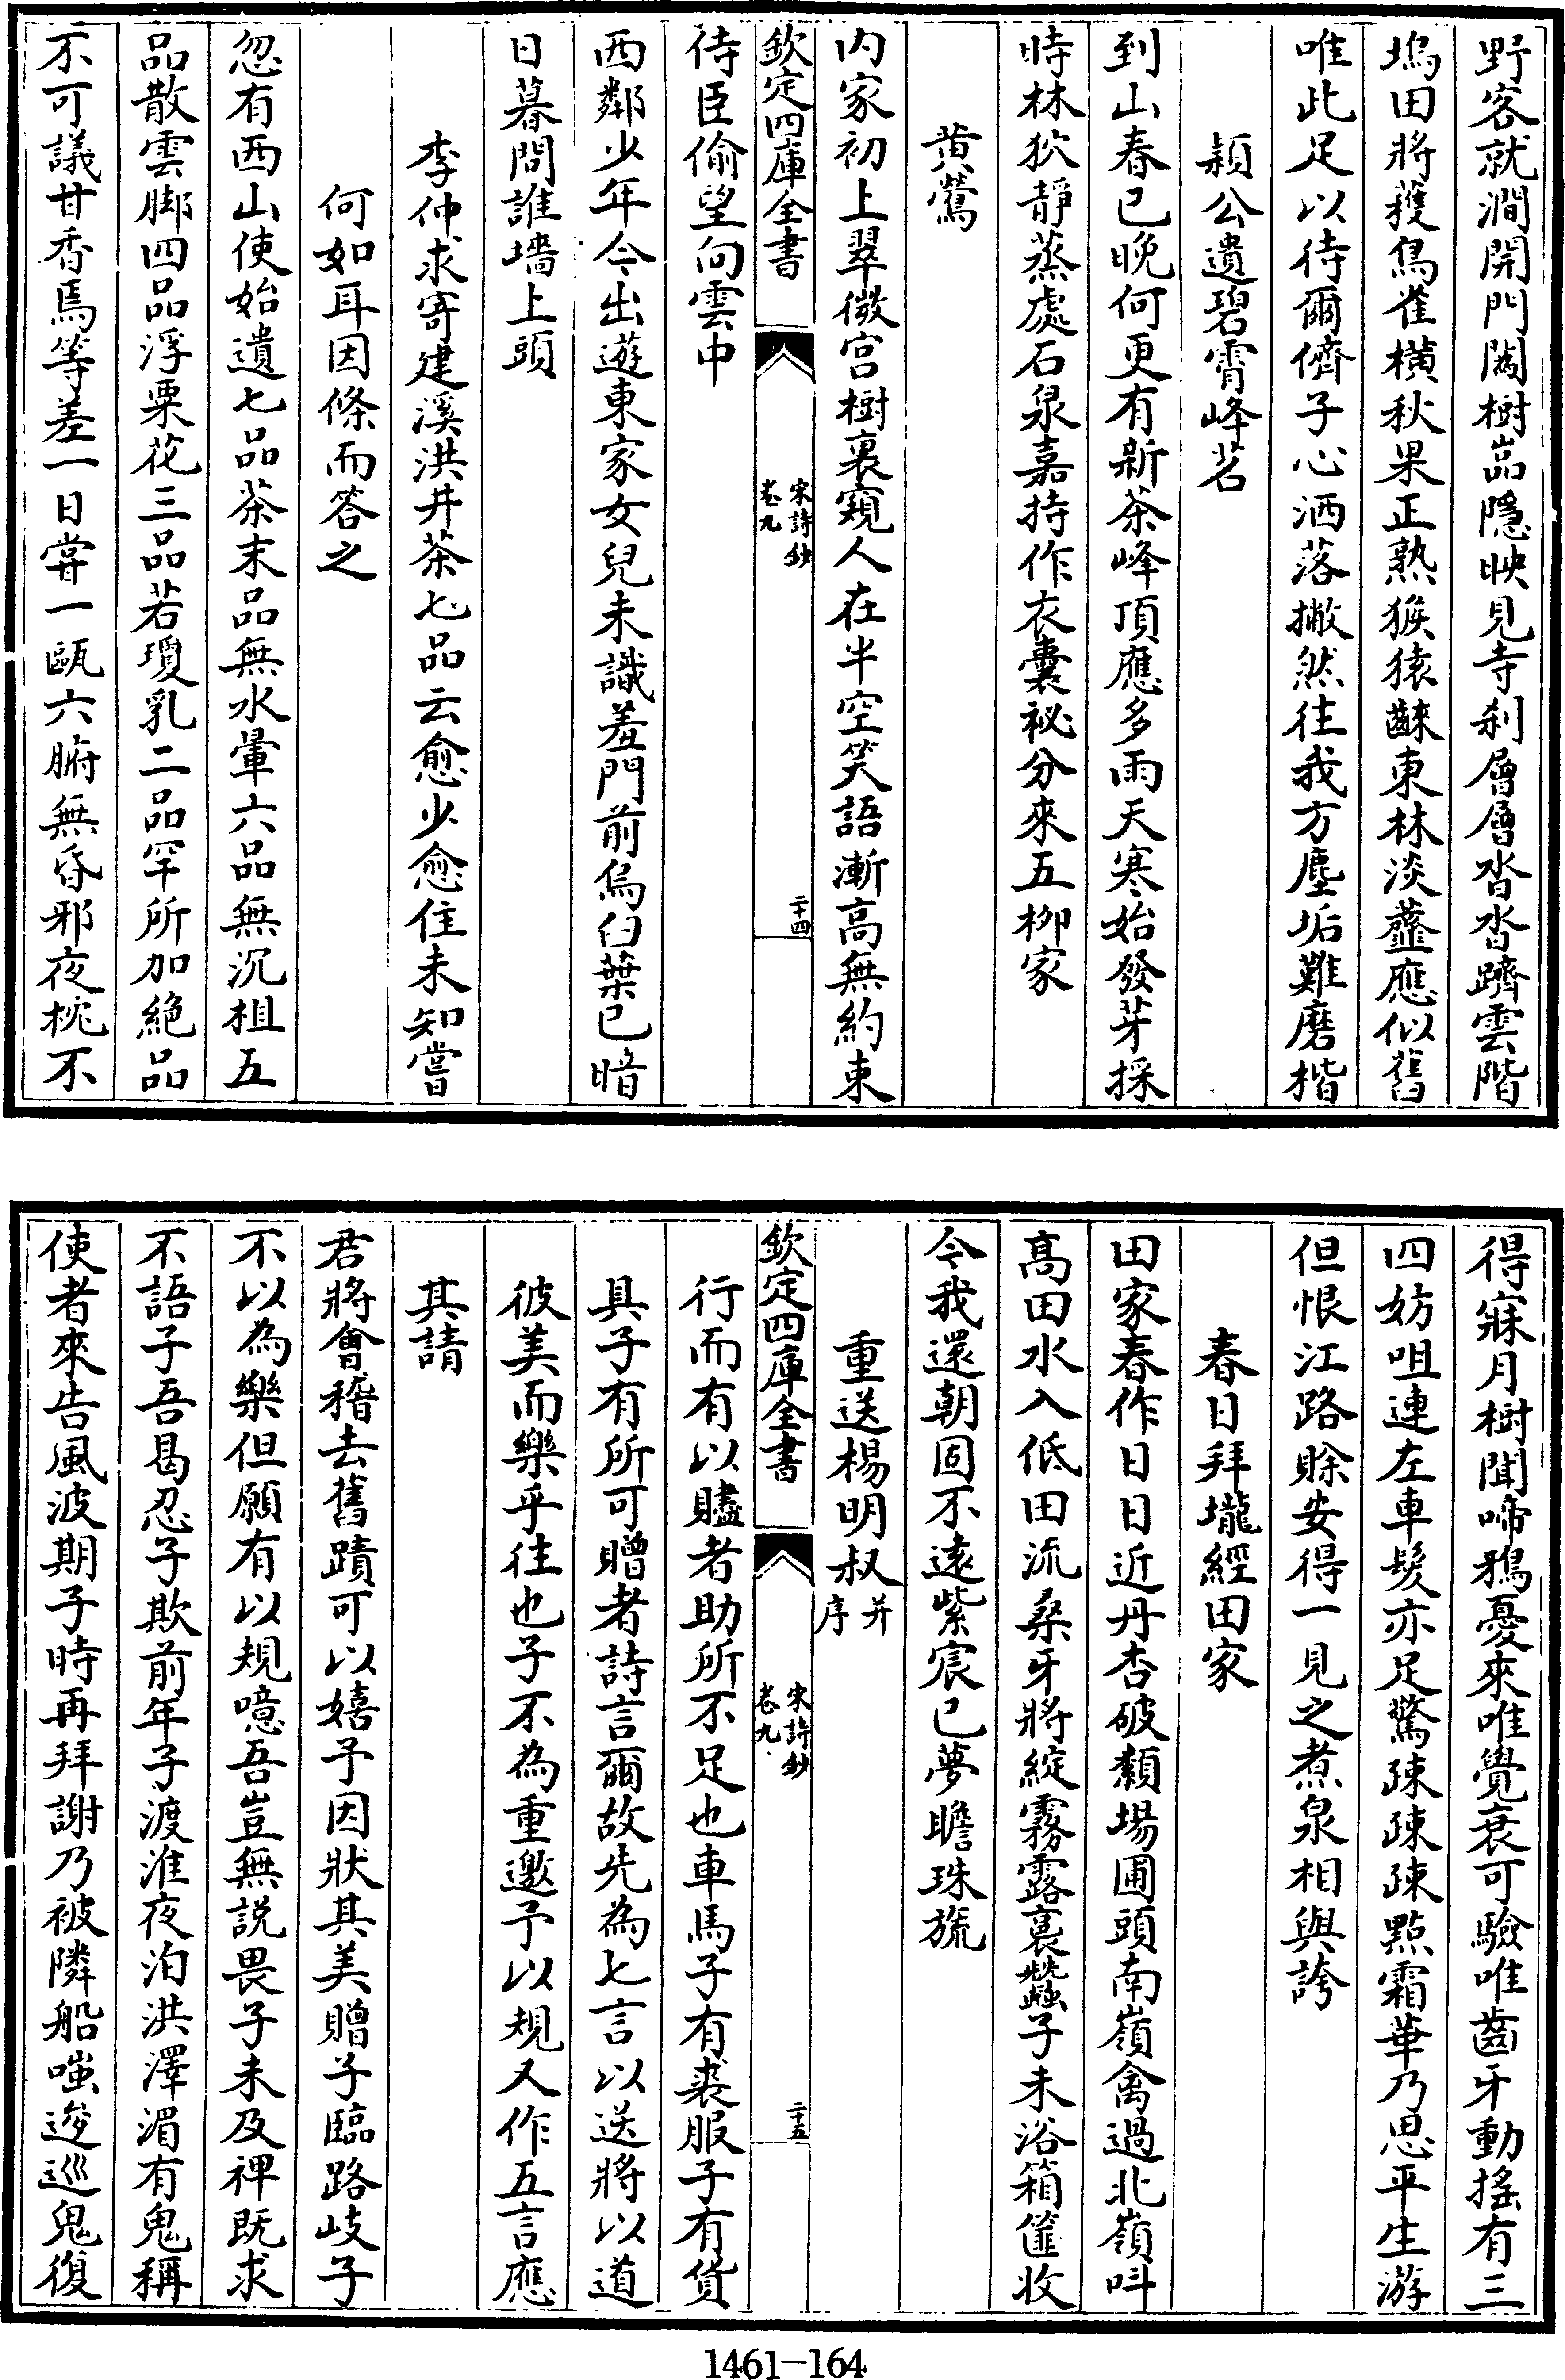 野客就澗開門闊樹嵓隱映見寺刹層層沓沓躋雲階
塢田將穫鳥雀橫秋果正熟猴猿齼東林淡虀應似舊
唯此足以待爾儕子心洒落撇然往我方塵垢難磨揩
頴公遺碧霄峰茗
到山春已晚何更有新茶峰頂應多雨天寒始發芽採
時林狖靜蒸處石泉嘉持作衣囊祕分來五柳家
黄鶯
内家初上翠微宫樹裏窺人在半空笑語漸高無約束
欽定四庫全書
宋詩鈔
卷九
二十四
待臣偷望向雲中
西鄰少年今出遊東家女兒未識羞門前烏臼葉已暗
日暮問誰墻上頭
李仲求寄建溪洪井茶七品云愈少愈佳未知嘗
何如耳因條而答之
忽有西山使始遺七品茶末品無水暈六品無沉柤五
品散雲脚四品浮粟花三品若瓊乳二品罕所加絶品
不可議甘香焉等差一日嘗一甌六腑無昏邪夜枕不
得寐月樹聞啼鴉憂來唯覺衰可驗唯齒牙動搖有三
四妨咀連左車髮亦足驚疎疎疎點霜華乃思平生游
但恨江路賒安得一見之煮泉相與誇
春日拜壠經田家
田家春作日日近丹杏破顙場圃頭南嶺禽過北嶺呌
髙田水入低田流桑牙將綻霧露裏蠶子未浴箱篚收
令我還朝固不遠紫宸已夢瞻珠旒
重送楊明叔并序
欽定四庫全書
宋詩鈔
卷九
二十五
行而有以贐者助所不足也車馬子有裘服子有貨
具子有所可贈者詩言爾故先為七言以送將以道
彼美而樂乎往也子不為重邀予以規又作五言應
其請
君將會稽去舊蹟可以嬉予因狀其美贈子臨路岐子
不以為樂但願有以規噫吾豈無説畏子未及裨既求
不語子吾曷忍子欺前年子渡淮夜泊洪澤湄有鬼稱
使者來告風波期子時再拜謝乃被隣船嗤逡巡鬼復
1461-164